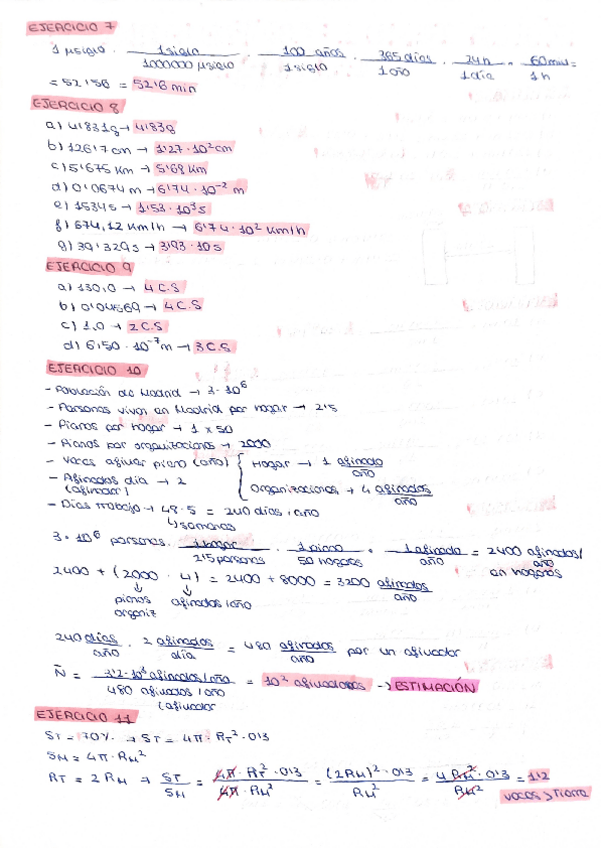 EJERCICIO 7
1 μsiglo · 1 siglo / 1000000 μsiglo · 100 años / 1 siglo · 365 días / 1 año · 24h / 1 día · 60 min / 1 h =
= 52'56 = 52'6 min
EJERCICIO 8
a) 4'831g → 4'83g
b) 126'7 cm → 1'27 · 10² cm
c) 5'675 Km → 5'68 Km
d) 0'0674 m → 6'74 · 10⁻² m
e) 1534 s → 1'53 · 10³ s
f) 674,12 Km/h → 6'74 · 10² Km/h
g) 39'329 s → 3'93 · 10 s
EJERCICIO 9
a) 130,0 → 4 C.S
b) 0'04569 → 4 C.S
c) 1,0 → 2 C.S
d) 6'50 · 10⁻⁷ m → 3 C.S
EJERCICIO 10
- Población de Madrid → 3 · 10⁶
- Personas viven en Madrid por hogar → 2'5
- Pianos por hogar → 1 x 50
- Pianos por organizaciones → 2000
- Veces afinar piano (año) { Hogar → 1 afinado / año
- Afinados día → 2
(afinador) Organizaciones → 4 afinados / año
- Días trabajo → 48 · 5 = 240 días / año
↳ semanas
3 · 10⁶ personas · 1 hogar / 2'5 personas · 1 piano / 50 hogares · 1 afinado / año = 2400 afinados / año
en hogares
2400 + (2000 · 4) = 2400 + 8000 = 3200 afinados / año
pianos afinados / año
organiz
240 días / año · 2 afinados / día = 480 afinados / año por un afinador
N = 3'2 · 10³ afinados / año / 480 afinados / año / afinador = 10² afinadores → ESTIMACIÓN
EJERCICIO 11
ST = 70% → ST = 4π · RT² · 0'3
SM = 4π · RM²
RT = 2 RM → ST / SM = 4π · RT² · 0'3 / 4π · RM² = (2RM)² · 0'3 / RM² = 4 RM² · 0'3 / RM² = 1'2
veces > Tierra